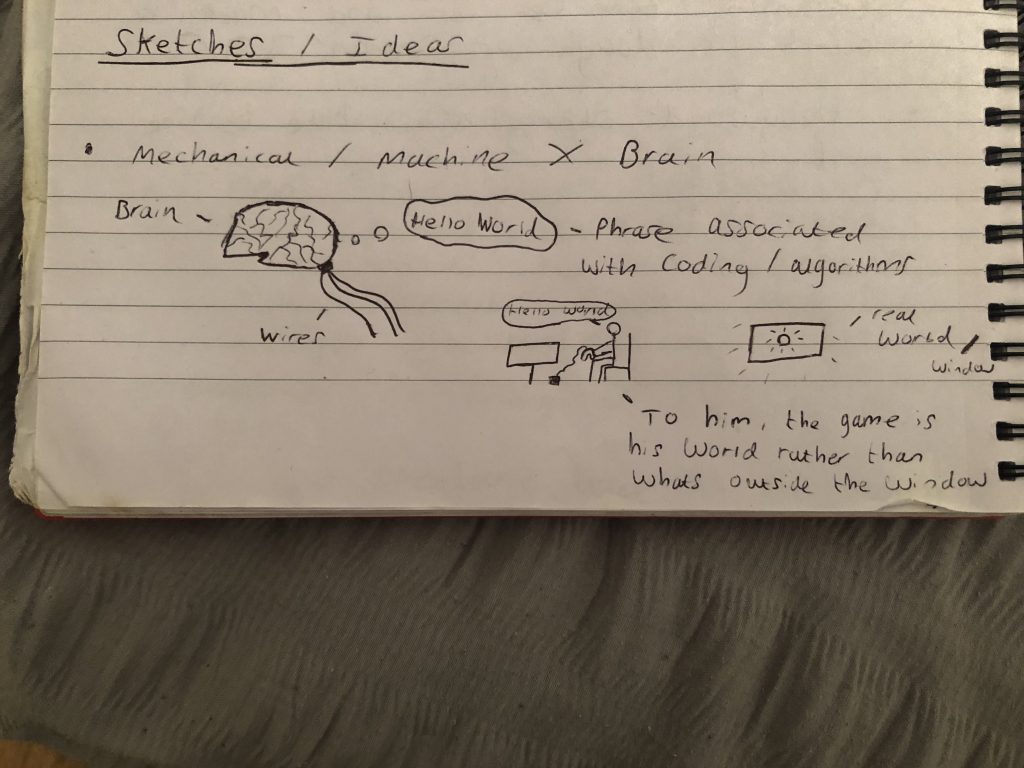 Sketches / Ideas
• Mechanical / Machine X Brain
Brain -
Hello World
- Phrase associated
with Coding / algorithms
wires
Hello World
real
World /
window
To him, the game is
his World rather than
whats outside the window